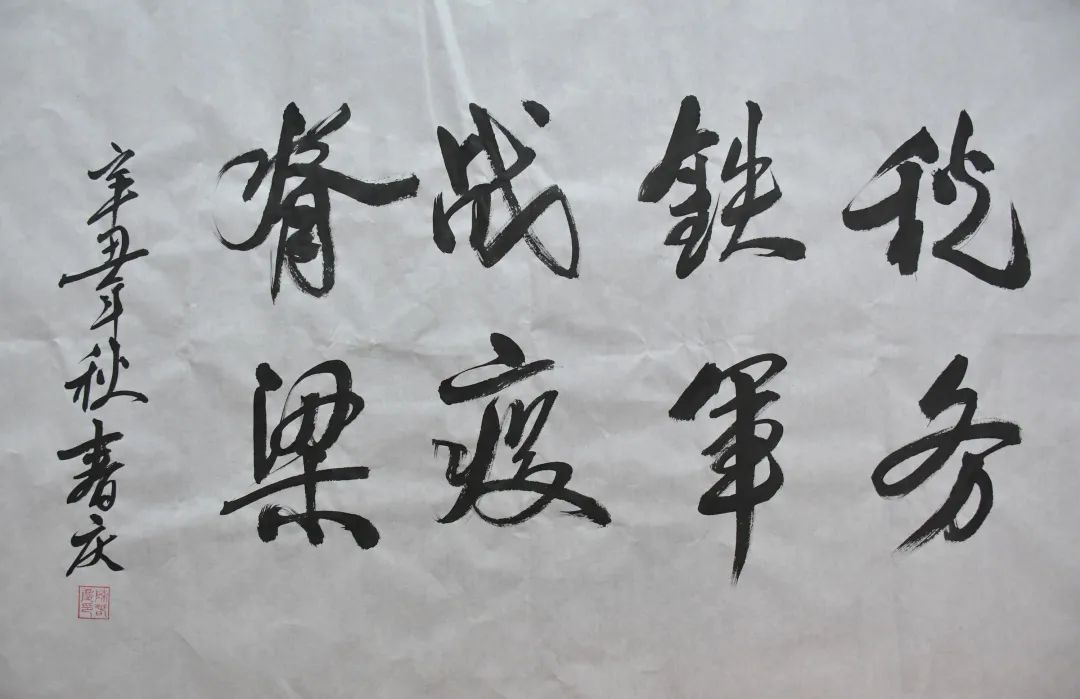 税务
铁军
战疫
脊梁
辛丑年秋春庆